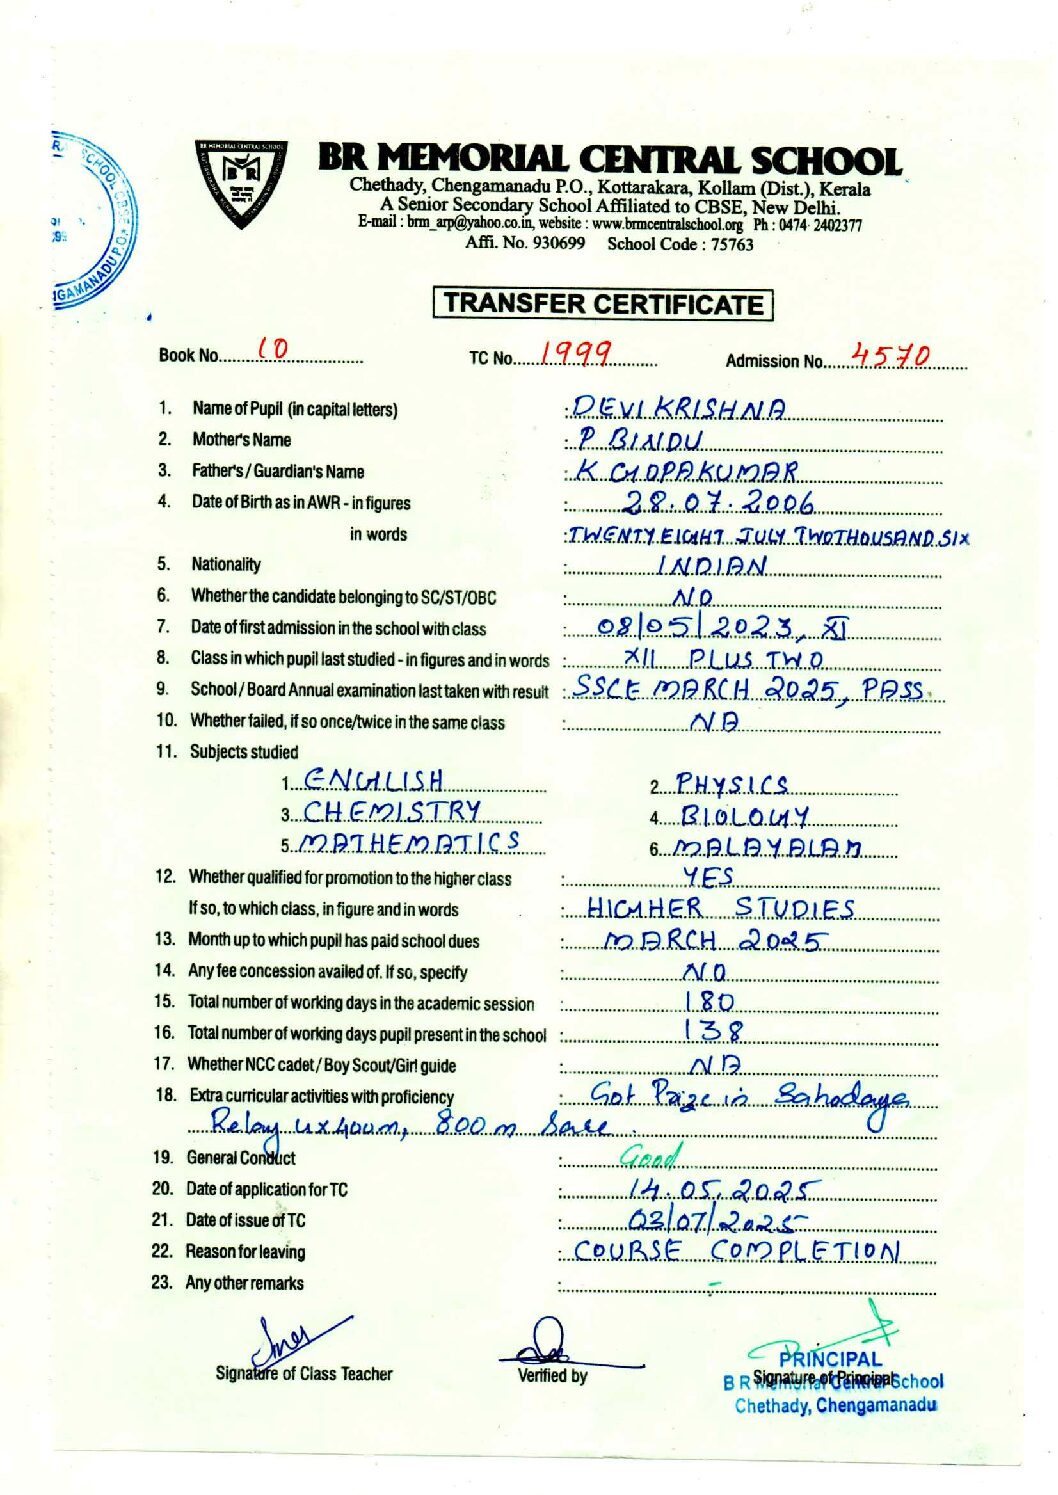 BR MEMORIAL CENTRAL SCHOOL
Chethady, Chengamanadu P.O., Kottarakara, Kollam (Dist.), Kerala
A Senior Secondary School Affiliated to CBSE, New Delhi.
E-mail : brm_arp@yahoo.co.in, website : www.brmcentralschool.org Ph : 0474 2402377
Affi. No. 930699 School Code : 75763
TRANSFER CERTIFICATE
Book No. 10 TC No. 1999 Admission No. 4570
1. Name of Pupil (in capital letters) : DEVI KRISHNA
2. Mother's Name : P BINDU
3. Father's / Guardian's Name : K GOPAKUMAR
4. Date of Birth as in AWR - in figures : 28.07.2006
in words : TWENTY EIGHT JULY TWOTHOUSAND SIX
5. Nationality : INDIAN
6. Whether the candidate belonging to SC/ST/OBC : NO
7. Date of first admission in the school with class : 08/05/2023, XI
8. Class in which pupil last studied - in figures and in words : XII PLUS TWO
9. School / Board Annual examination last taken with result : SSCE MARCH 2025, PASS.
10. Whether failed, if so once/twice in the same class : NA
11. Subjects studied
1. ENGLISH 2. PHYSICS
3. CHEMISTRY 4. BIOLOGY
5. MATHEMATICS 6. MALAYALAM
12. Whether qualified for promotion to the higher class : YES
If so, to which class, in figure and in words : HIGHER STUDIES
13. Month up to which pupil has paid school dues : MARCH 2025
14. Any fee concession availed of. If so, specify : NO
15. Total number of working days in the academic session : 180
16. Total number of working days pupil present in the school : 138
17. Whether NCC cadet / Boy Scout/Girl guide : NA
18. Extra curricular activities with proficiency : Got Prize in Sahodaya
Relay 4x400m, 800 m
19. General Conduct : Good
20. Date of application for TC : 14.05.2025
21. Date of issue of TC : 03/07/2025
22. Reason for leaving : COURSE COMPLETION
23. Any other remarks : -
Signature of Class Teacher Verified by Signature of Principal
PRINCIPAL
B R Memorial Central School
Chethady, Chengamanadu